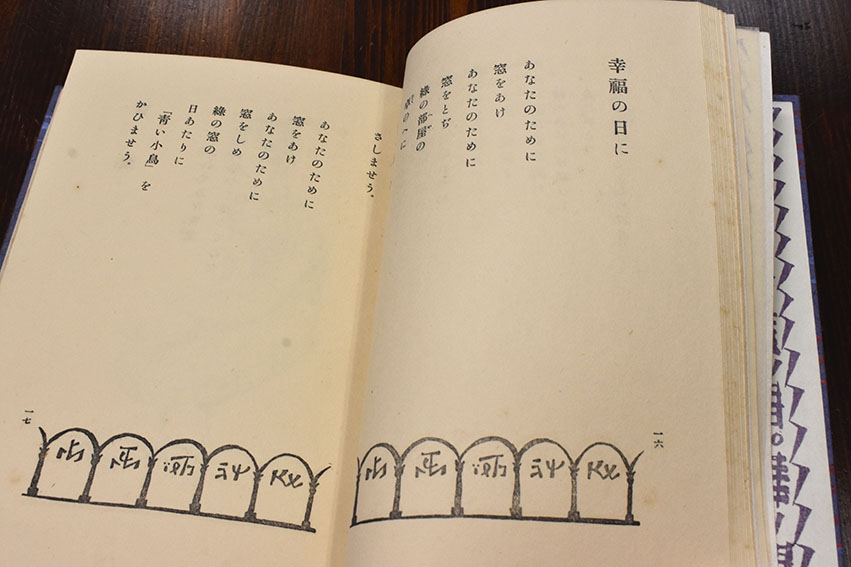 幸福の日に
あなたのために
窓をあけ
あなたのために
窓をとぢ
綠の部屋の
さしませう。
あなたのために
窓をあけ
あなたのために
窓をしめ
綠の窓の
日あたりに
「靑い小鳥」を
かひませう。
一六
一七